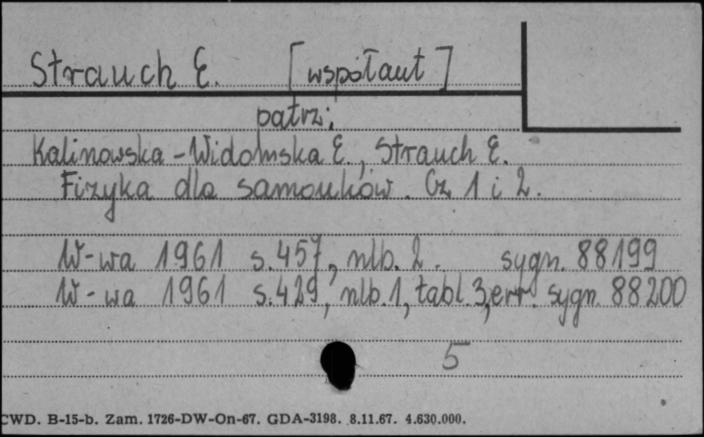 Strauch E. [współaut]
patrz:
Kalinowska-Widomska E., Strauch E.
Fizyka dla samouków. Cz. 1 i 2.
W-wa 1961 s. 457, nlb. 2. sygn. 88199
W-wa 1961 s. 429, nlb. 1, tabl. 3, err. sygn. 88200
5
CWD. B-15-b. Zam. 1726-DW-On-67. GDA-3198. 8.11.67. 4.630.000.